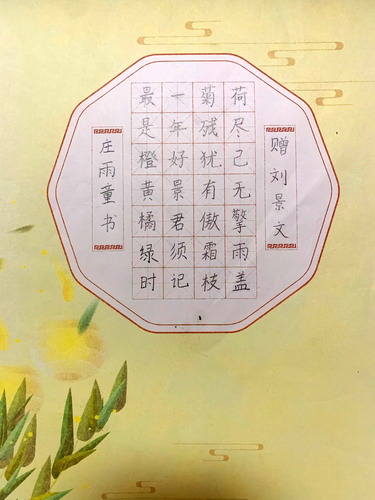 赠刘景文
荷尽己无擎雨盖
菊残犹有傲霜枝
一年好景君须记
最是橙黄橘绿时
庄雨童书